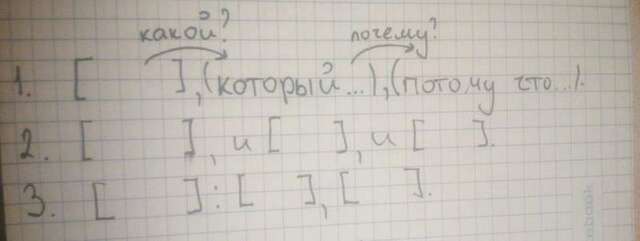 какой? почему?
1. [ ], (который...), (потому что...).
2. [ ], и [ ], и [ ].
3. [ ] : [ ], [ ].